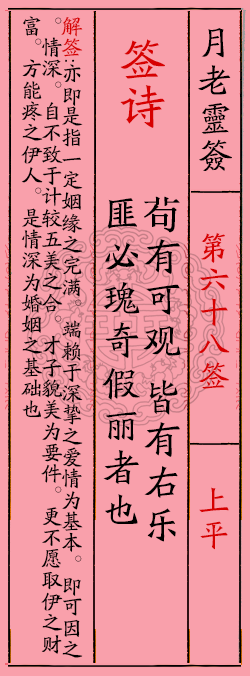 月老靈簽
第六十八签
上平
签诗
苟有可观 皆有右乐
匪必瑰奇假丽者也
解签:亦即是指一定姻缘之完满。端赖于深挚之爱情为基本。即可因之
。情深。自不致于计较五美之合。才子貌美为要件。更不愿取伊之财
富。方能疼之伊人。是情深为婚姻之基础也